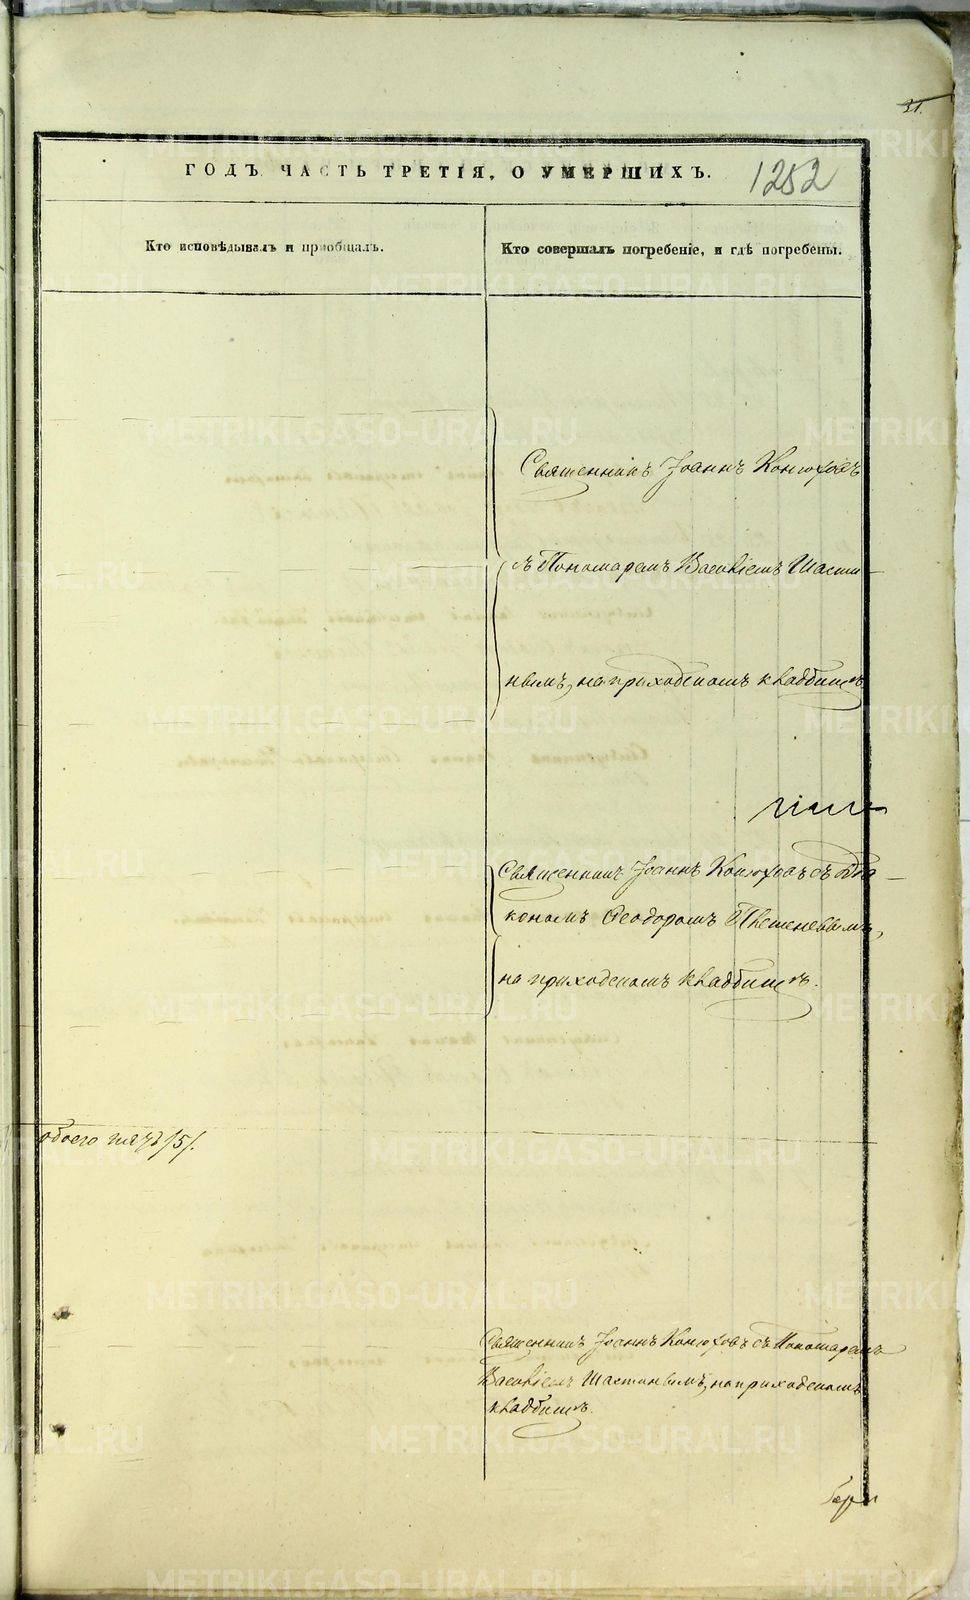 31.
ГОДЪ ЧАСТЬ ТРЕТІЯ, О УМЕРШИХЪ.
1252
Кто исповѣдывалъ и пріобщалъ.
Кто совершалъ погребеніе, и гдѣ погребены.
Священникъ Іоаннъ Конюховъ
съ Пономаремъ Василіемъ Шасти
нымъ, на приходскомъ кладбищѣ
Священникъ Іоаннъ Конюховъ съ Діа
кономъ Ѳеодоромъ
на приходскомъ кладбищѣ.
обоего /5/.
Священникъ Іоаннъ Конюховъ съ Пономаремъ
Василіемъ Шастинымъ, на приходскомъ
кладбищѣ.
METRIKI.GASO-URAL.RU